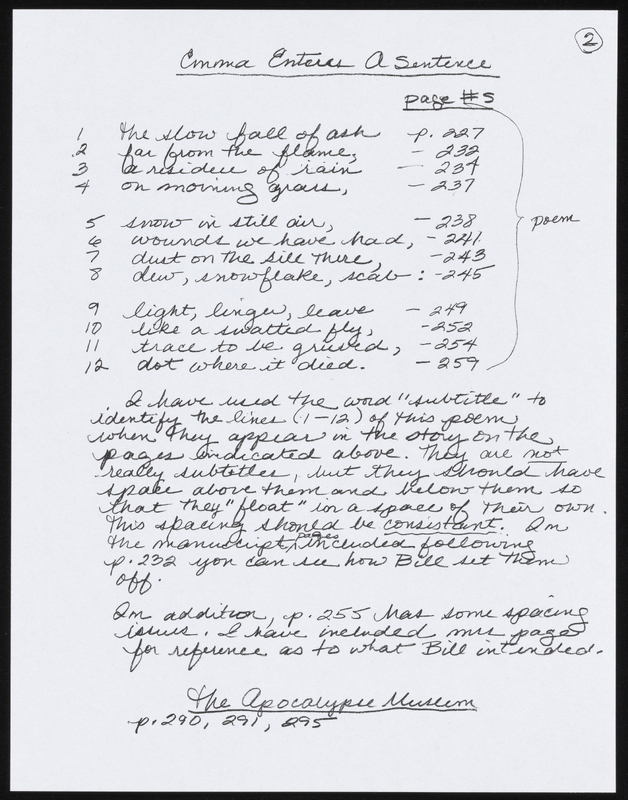 2
Emma Enters A Sentence
page #s
1 the slow fall of ash p. 227
2 far from the flame, - 232
3 a residue of rain - 234
4 on morning grass, - 237
5 snow in still air, - 238
6 wounds we have had, - 241
poem
7 dust on the sill there, - 243
8 dew, snowflake, scab : - 245
9 light, linger, leave - 249
10 like a swatted fly, - 252
11 trace to be grieved, - 254
12 dot where it died. - 259
I have used the word "subtitle" to
identify the lines (1-12) of this poem
when they appear in the story on the
pages indicated above. They are not
really subtitles, but they should have
space above them and below them so
that they "float" in a space of their own.
This spacing should be consistant. In
the manuscript pages included following
p. 232 you can see how Bill set them
off.
In addition, p. 255 has some spacing
issues. I have included mss page
for reference as to what Bill intended.
The Apocalypse Museum
p. 290, 291, 295